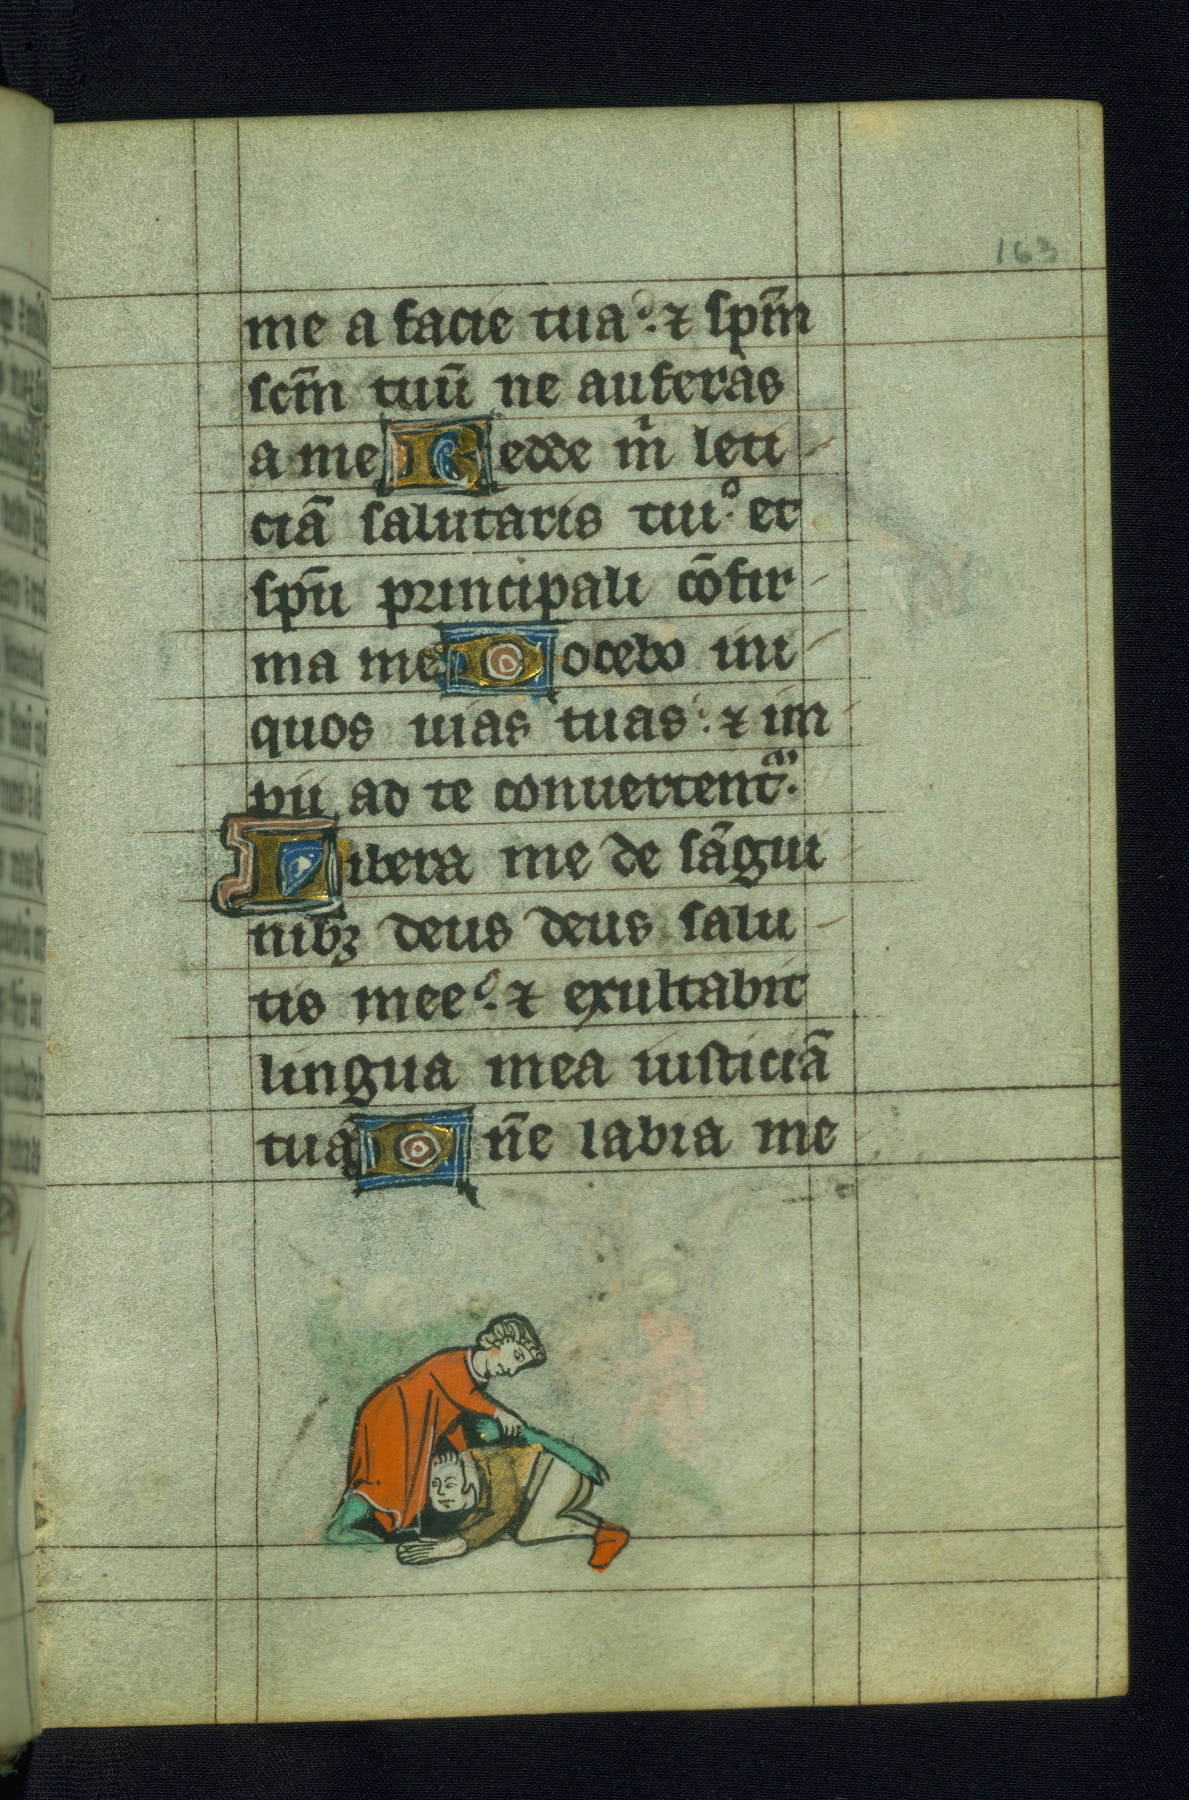 163
me a facie tua. ⁊ sp̄m
sc̄m tuū ne auferas
a me Redde m̄ leti
ciā salutaris tui. et
sp̄u principali cōfir
ma me Docebo ini
quos uias tuas. ⁊ im
pii ad te conuertent᷑.
Libera me de sāgui
nibꝫ deus deus salu
tis mee. ⁊ exultabit
lingua mea iusticiā
tuā Dn̄e labia me